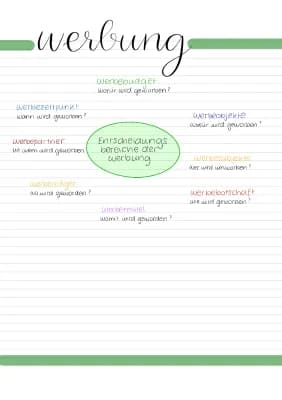 werbung
werbebudget
wofür wird geworben?
werbezeitpunkt
wann wird geworben?
werbeobjekte
wofür wird geworben?
werbepartner
mit wem wird geworben?
Entscheidungs
bereiche der
werbung
werbesubjekte
wer wird umworben?
werbeträger
wo wird geworben?
werbebotschaft
wie wird geworben?
werbemittel
womit wird geworben?